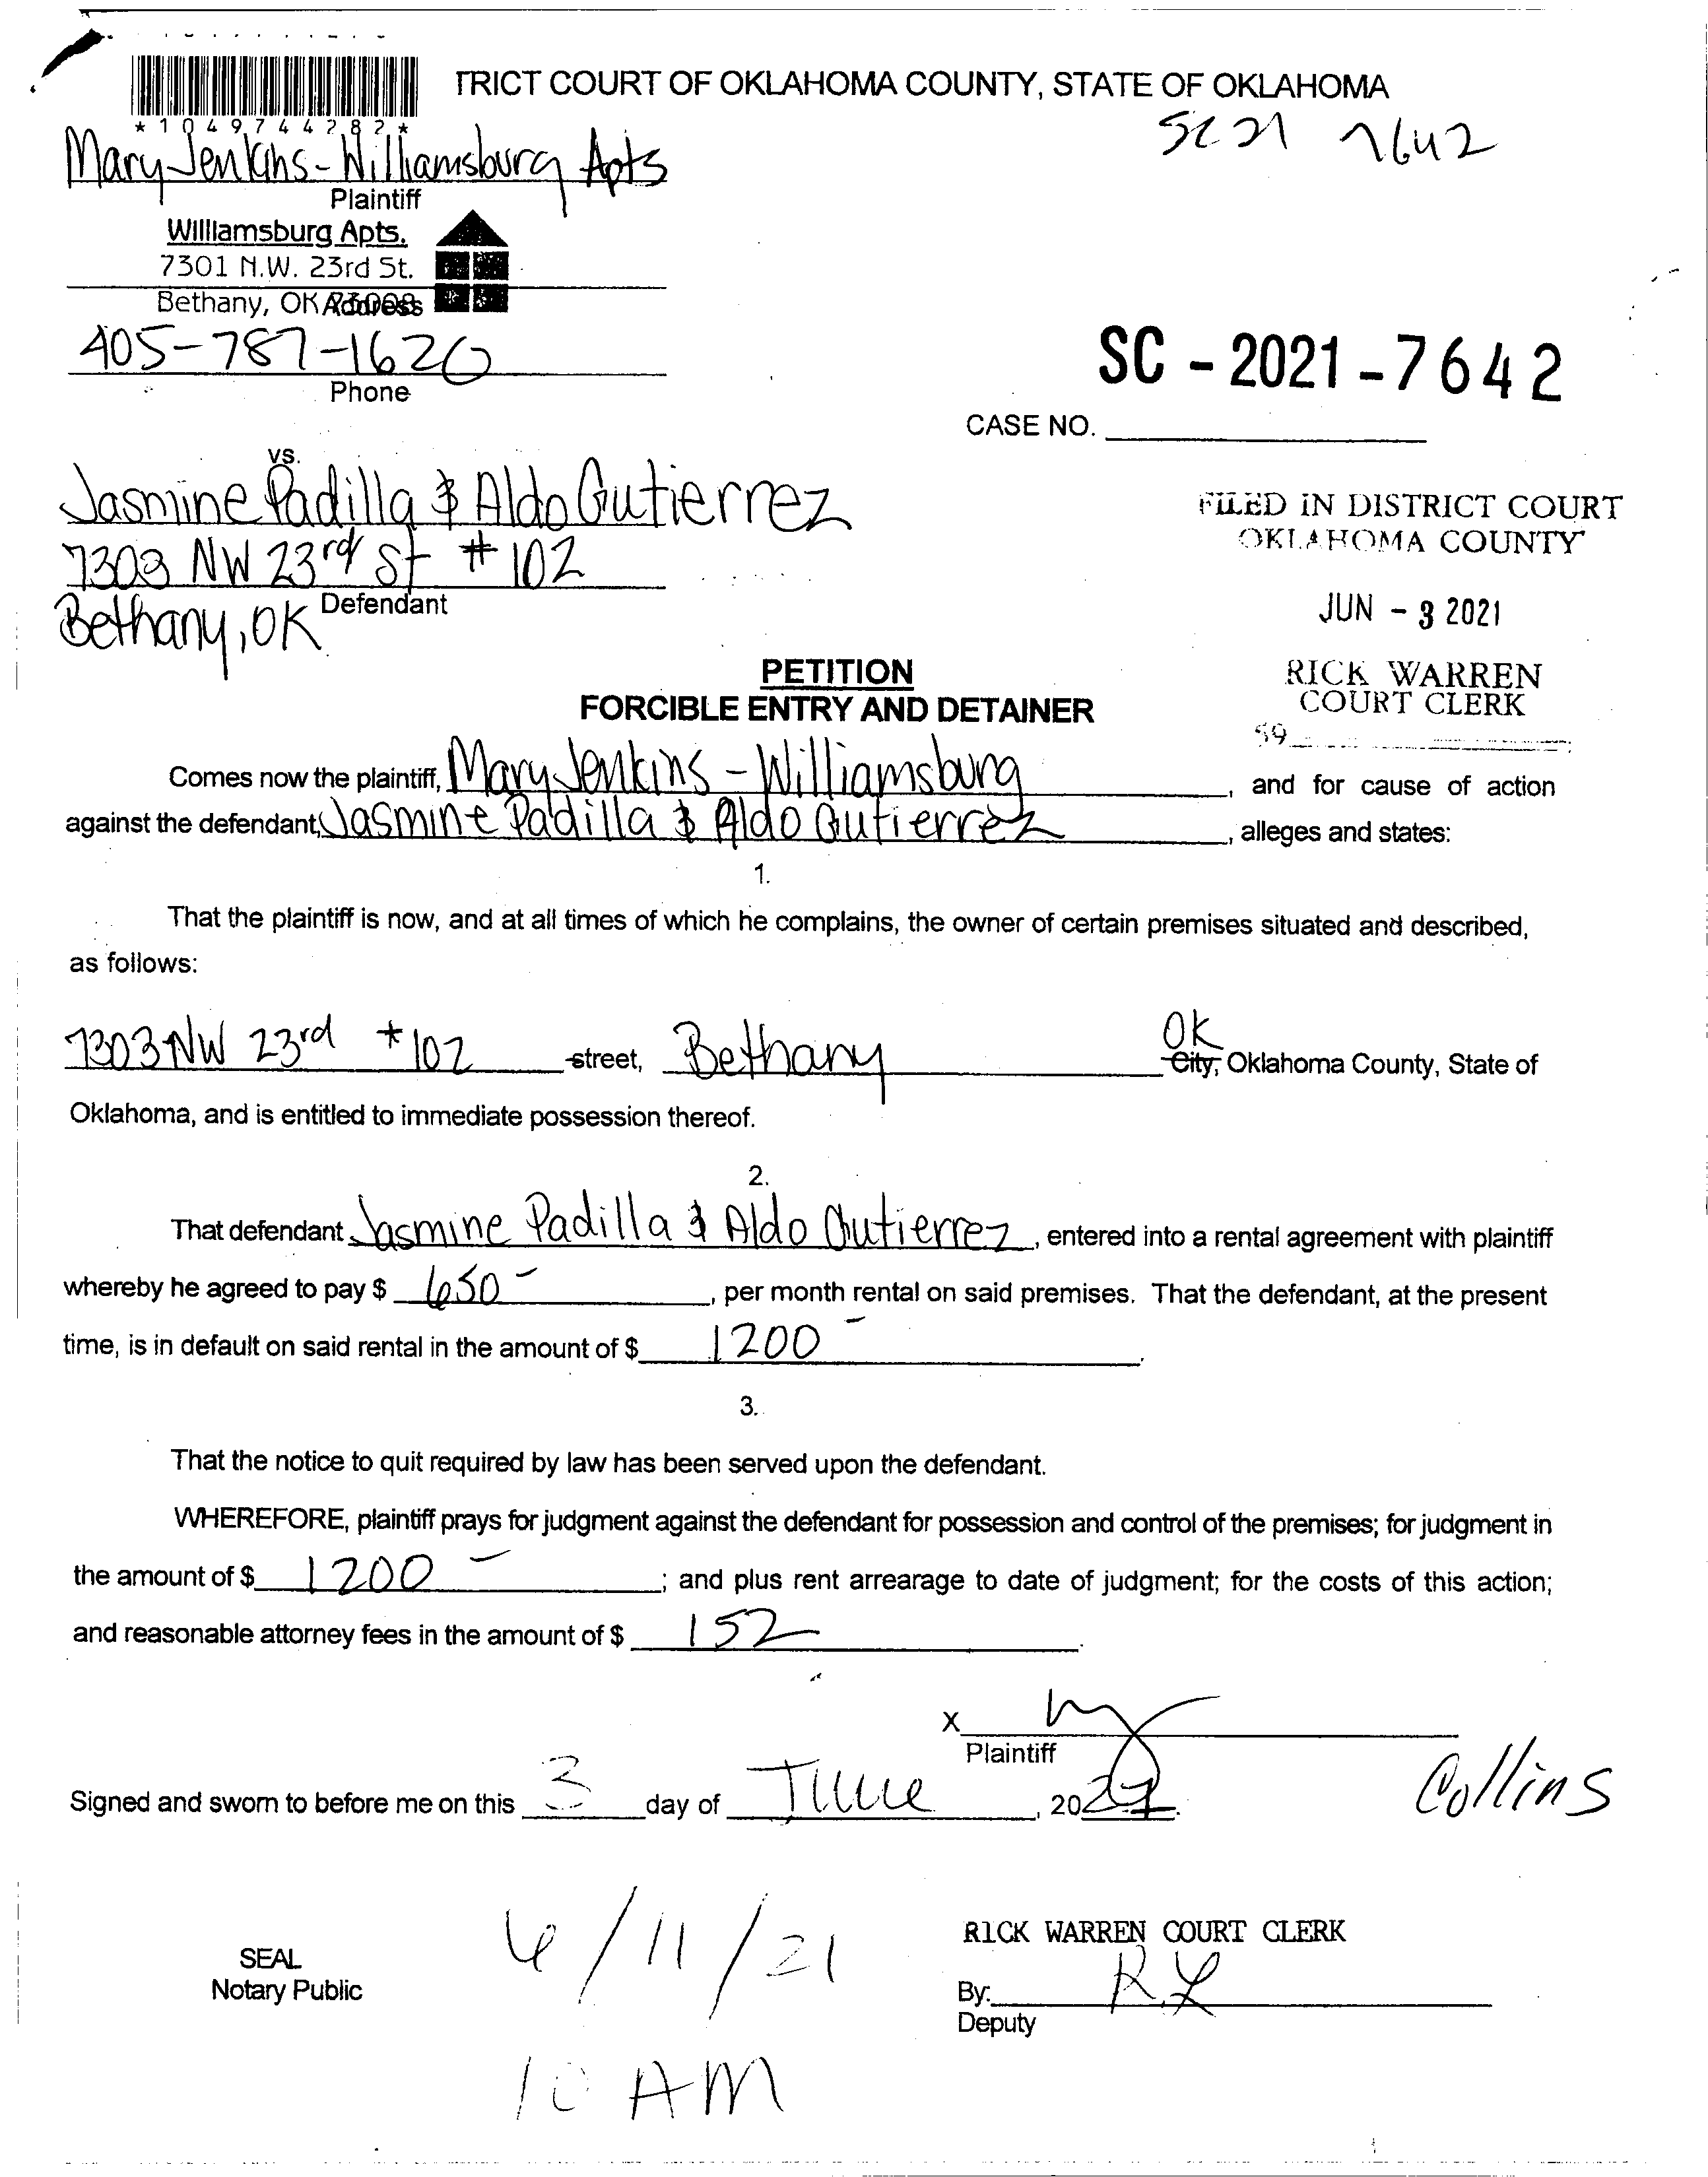 TRICT COURT OF OKLAHOMA COUNTY, STATE OF OKLAHOMA
*1049744282*
SC 21 7642
Mary Jenkins - Williamsburg Apts
Plaintiff
Williamsburg Apts.
7301 N.W. 23rd St.
Bethany, OK 73008
Address
405-787-1620
Phone
SC - 2021 - 7642
CASE NO.
vs.
Jasmine Padilla & Aldo Gutierrez
7303 NW 23rd St #102
Defendant
Bethany, OK
FILED IN DISTRICT COURT
OKLAHOMA COUNTY
JUN - 3 2021
RICK WARREN
COURT CLERK
59
PETITION
FORCIBLE ENTRY AND DETAINER
Comes now the plaintiff, Mary Jenkins - Williamsburg, and for cause of action
against the defendant, Jasmine Padilla & Aldo Gutierrez, alleges and states:
1.
That the plaintiff is now, and at all times of which he complains, the owner of certain premises situated and described,
as follows:
7303 NW 23rd #102 street, Bethany OK City, Oklahoma County, State of
Oklahoma, and is entitled to immediate possession thereof.
2.
That defendant Jasmine Padilla & Aldo Gutierrez, entered into a rental agreement with plaintiff
whereby he agreed to pay $ 650 -, per month rental on said premises. That the defendant, at the present
time, is in default on said rental in the amount of $ 1200 -.
3.
That the notice to quit required by law has been served upon the defendant.
WHEREFORE, plaintiff prays for judgment against the defendant for possession and control of the premises; for judgment in
the amount of $ 1200 -; and plus rent arrearage to date of judgment; for the costs of this action;
and reasonable attorney fees in the amount of $ 152.
X
Plaintiff
Signed and sworn to before me on this 3 day of June, 2021.
Collins
6/11/21
10 AM
SEAL
Notary Public
RICK WARREN COURT CLERK
By: R.L
Deputy